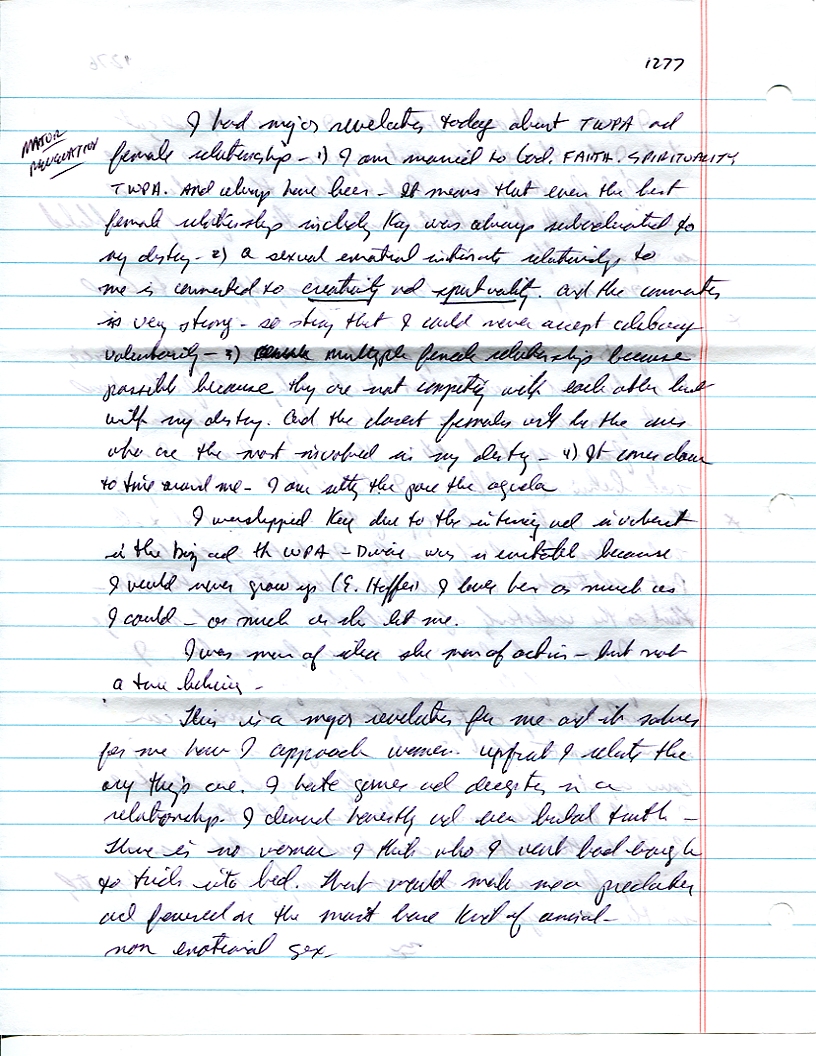 1277
MAJOR
REVELATION
I had major revelation today about TWPA and
female relationship - 1) I am married to God. FAITH. SPIRITUALITY
TWPA. And always have been - It means that even the best
female relationship including Kay was always subordinated to
my destiny - 2) a sexual emotional intimate relationship to
me is connected to creativity and spirituality. And the connection
is very strong - so strong that I could never accept celibacy
voluntarily - 3) multiple female relationship because
possible because they are not competing with each other but
with my destiny. And the closest females will be the ones
who are the most involved in my destiny - 4) It comes down
to time around me - I am setting the pace the agenda
I worshipped Kay due to the intensity and involvement
in the and the WPA - Divorce was inevitable because
I would never grow up (E. Hoffer) I love her as much as
I could - as much as she let me.
I was man of ideas she man of action - but not
a true believing -
This is a major revelation for me and it solves
for me how I approach women. upfront I relate the
way things are. I hate games and deception in a
relationship. I demand honesty and even brutal truth -
There is no woman I think who I want bad enough
to trick into bed. That would make me a predator
and focused on the most base kind of animal -
non emotional sex.